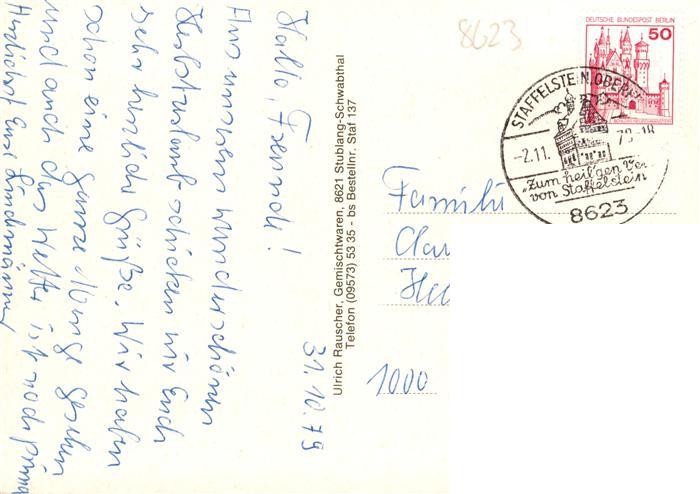 31.10.79
Hallo, Freunde!
Aus unserem wunderschönen
Herbsturlaub schicken wir Euch
sehr herzliche Grüße. Wir haben
schon eine ganze Menge gesehen
und auch das Wetter ist noch prima
Herzlichst Eure
Ulrich Rauscher, Gemischtwaren, 8621 Stublang-Schwabthal
Telefon (09573) 53 35 - bs Bestellnr. Staf 137
8623
DEUTSCHE BUNDESPOST BERLIN
50
STAFFELSTEIN, OBERFR
-2.11. 79-18
"Zum heil'gen Vei-
von Staffelstein
8623
Familie
Clau
1000